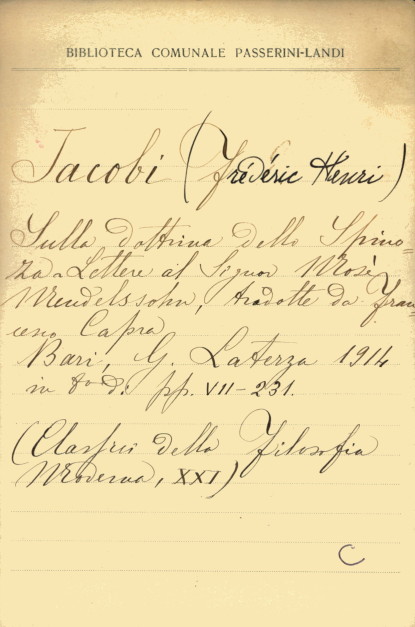 BIBLIOTECA COMUNALE PASSERINI-LANDI
Jacobi (Frédéric Henri)
Sulla dottrina dello Spino=
za. Lettere al Signor Mosè
Mendelssohn, tradotte da Fran=
cesco Capra
Bari, G. Laterza 1914
in 8vo d: pp. VII-231.
(Classici della Filosofia
Moderna, XXI)
C